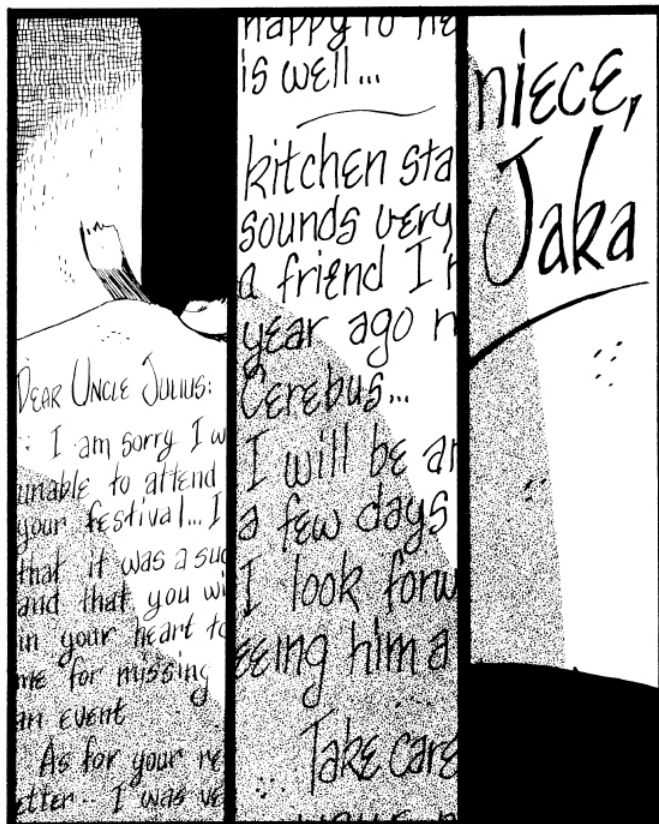 Dear Uncle Julius:
I am sorry I w
unable to attend
your festival... I
that it was a suc
and that you wi
in your heart to
me for missing
an event
As for your re
etter.. I was ve
happy to he
is well...
kitchen sta
sounds very
a friend I
year ago n
Cerebus...
I will be ar
a few days
I look forw
eeing him a
Take care
niece,
Jaka